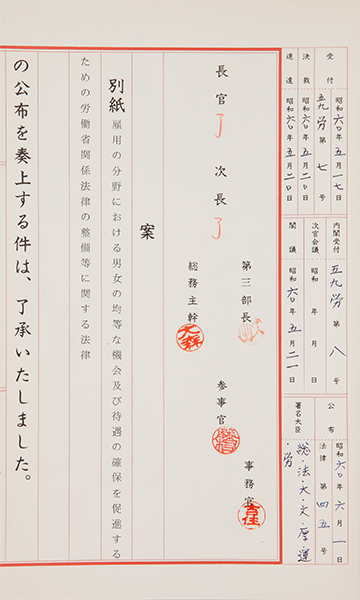 受付 昭和六〇年五月一七日
五九労第七号
決裁 昭和六〇年五月二〇日
進達 昭和六〇年五月二〇日
内閣受付 五九労第八号
次官会議 昭和 年 月 日
閣議 昭和六〇年五月二一日
公布 昭和六〇年六月一日
法律第四五号
署名大臣 総・法・大・文・厚・運・労
長官 了 次長 了
第三部長
総務主幹
参事官
事務官
案
別紙 雇用の分野における男女の均等な機会及び待遇の確保を促進する
ための労働省関係法律の整備等に関する法律
の公布を奏上する件は、了承いたしました。